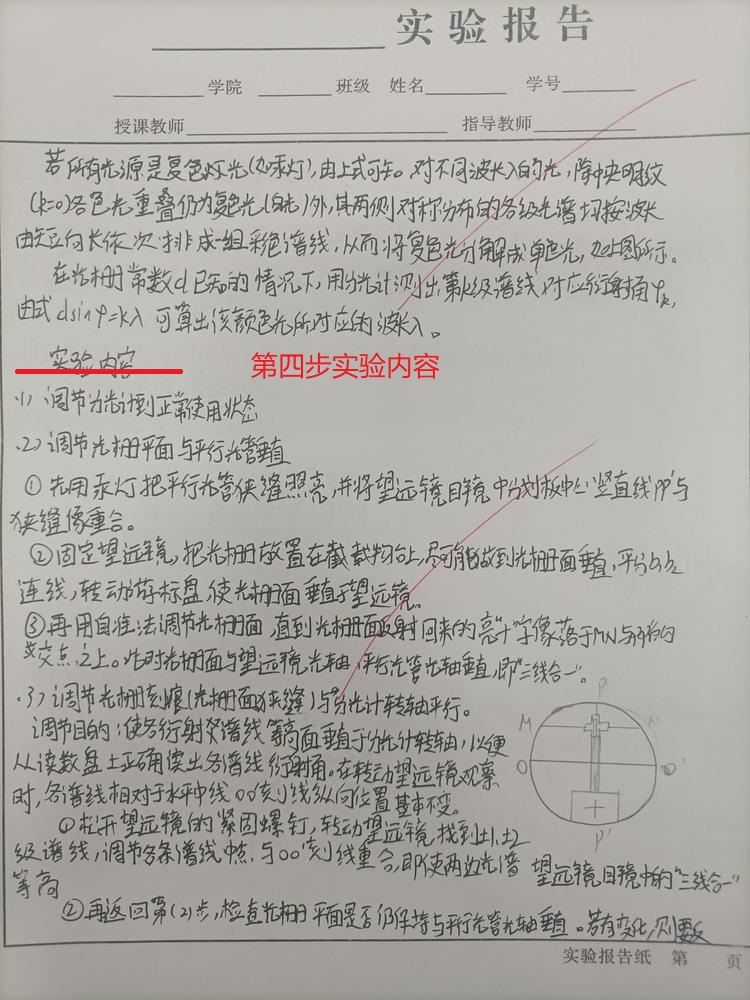 实验报告
学院 班级 姓名 学号
授课教师 指导教师
若所有光源是复色灯光(如汞灯),由上式可知。对不同波长λ的光,除中央明纹
(k=0)各色光重叠仍为复色光(白光)外,其两侧对称分布的各级光谱均按波长
由短向长依次排成一组彩色谱线,从而将复色光分解成单色光,如上图所示。
在光栅常数d已知的情况下,用分光计测出第k级谱线对应衍射角φk,
由式dsinφ=kλ可算出该颜色光所对应的波长λ。
实验内容 第四步实验内容
(1)调节分光计到正常使用状态
(2)调节光栅平面与平行光管垂直
①先用汞灯把平行光管狭缝照亮,并将望远镜目镜中分划板中心竖直线PP'与
狭缝像重合。
②固定望远镜,把光栅放置在载物台上,尽可能做到光栅面垂直,平分b1b2
连线,转动游标盘,使光栅面垂直于望远镜。
③再用自准法调节光栅面,直到光栅面反射回来的亮"十"字像落于MN与
交点之上。此时光栅面与望远镜光轴,平行光管光轴垂直,即"三线合一"。
(3)调节光栅刻痕(光栅面狭缝)与分光计转轴平行。
调节目的:使各衍射谱线等高面垂直于分光计转轴,以便
从读数盘上正确读出各谱线衍射角。在转动望远镜观察
时,各谱线相对于水平中线OO'刻线纵向位置基本不变。
P
M N
O O'
P'
①松开望远镜的紧固螺钉,转动望远镜,找到±1,±2
级谱线,调节各条谱线中点与OO'刻线重合,即使两边光谱
等高
望远镜目镜中的"三线合一"
②再返回第(2)步,检查光栅平面是否仍保持与平行光管光轴垂直。若有变化,则要
实验报告纸 第 页